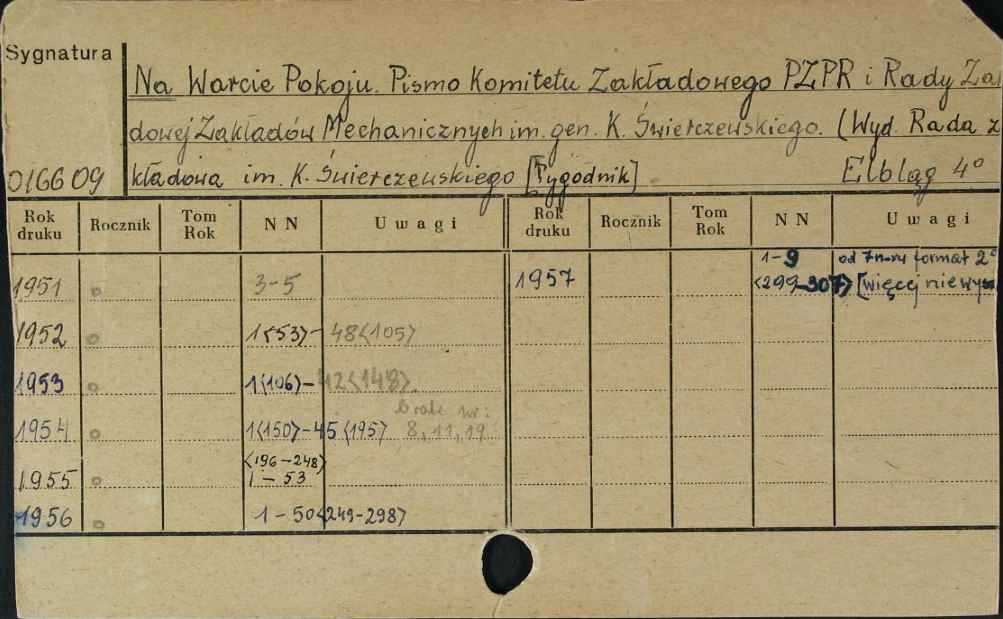 Sygnatura
Na Warcie Pokoju. Pismo Komitetu Zakładowego PZPR i Rady Za
dowej Zakładów Mechanicznych im. gen. K. Świerczewskiego. (Wyd. Rada z
kładowa im. K. Świerczewskiego [Tygodnik] Elbląg 4°
016609
Rok druku Rocznik Tom Rok NN Uwagi Rok druku Rocznik Tom Rok NN Uwagi
1951 3-5 1957 1-9 <299-307> od 7 n-ru format 2° [więcej nie wysz
1952 1<53>- 48<105>
1953 1<106>- 42<148>
1954 1<150>-45<195> Brak nr: 8, 11, 19
<196-248>
1955 1-53
1956 1-50<249-298>